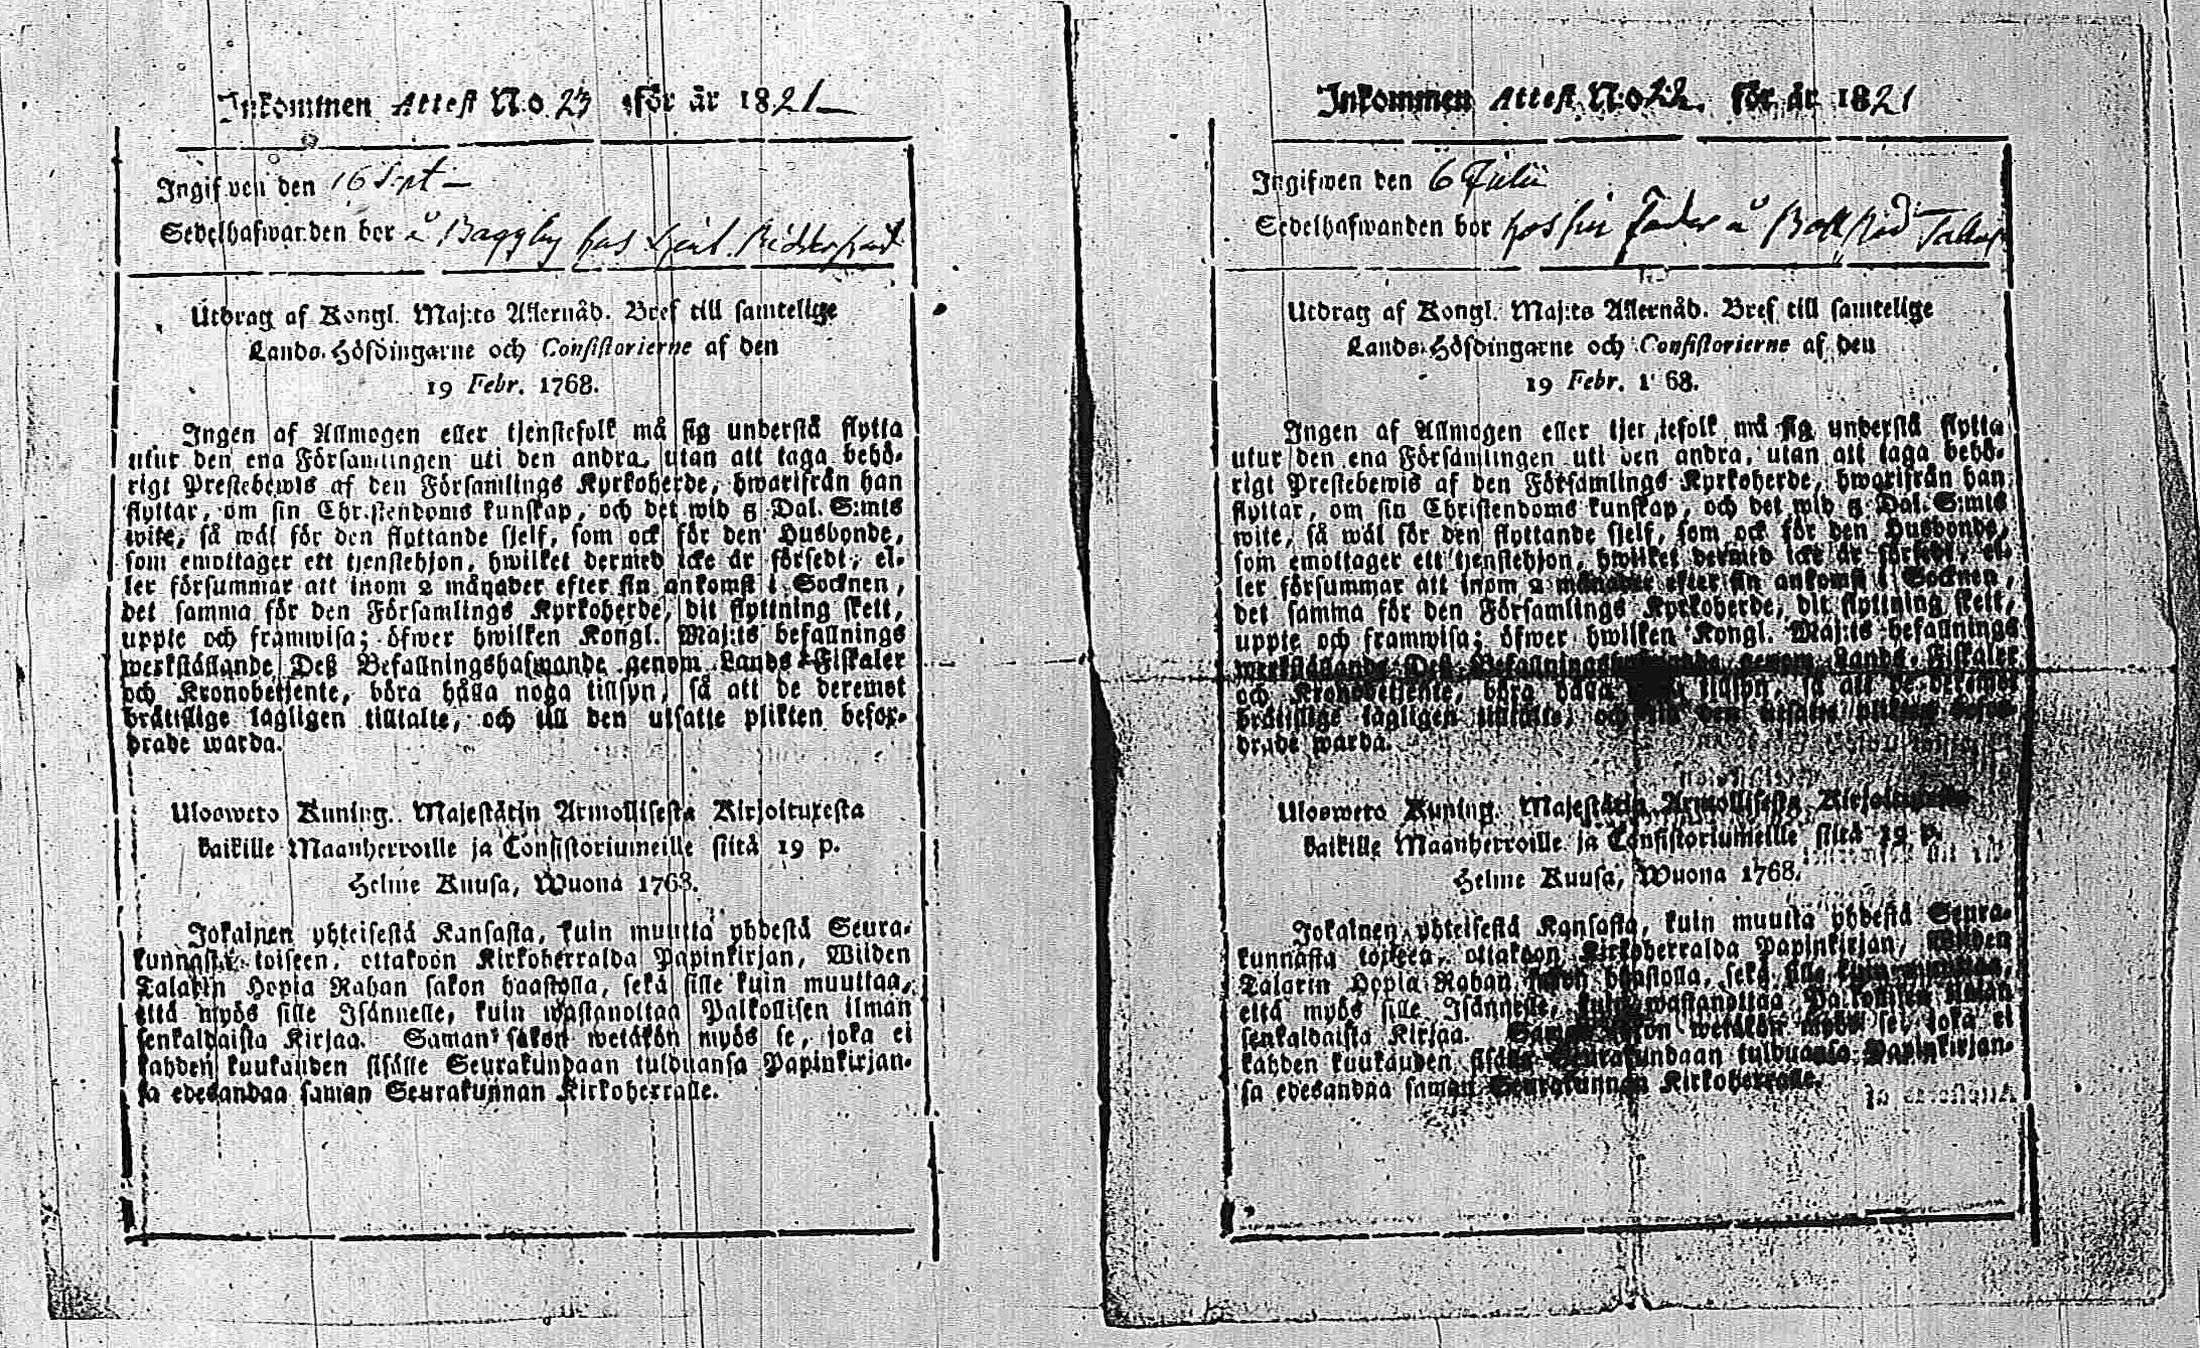 Inkommen Attest N:o 23 för år 1821
Ingifven den 16 Sept
Sedelhafwanden bor å Baggby hos
Utdrag af Kongl. Maj:ts Allernåd. Bref till samtelige
Lands-Höfdingarne och Consistorierne af den
19 Febr. 1768.
Ingen af Allmogen eller tjenstefolk må sig understå flytta
utur den ena Församlingen uti den andra, utan att taga behö-
rigt Prestebewis af den Församlings Kyrkoherde, hwarifrån han
flyttar, om sin Christendoms kunskap, och det wid 5 Dal. S:mts
wite, så wäl för den flyttande sjelf, som ock för den Husbonde,
som emottager ett tjenstehjon, hwilket dermed icke är försedt; el-
ler försummar att inom 2 månader efter sin ankomst i Socknen,
det samma för den Församlings Kyrkoherde, dit flyttning skett,
uppte och framwisa; öfwer hwilken Kongl. Maj:ts befallnings
werkställande Deß Befallningshafwande genom Lands-Fiskaler
och Kronobetjente, böra hålla noga tillsyn, så att de deremot
brättslige lagligen tilltalte, och till den utsatte plikten befor-
drade warda.
Ulosweto Kuning. Majestätin Armollisesta Kirjoituxesta
kaikille Maanherroille ja Consistoriumeille siitä 19 p.
Helme Kuusa, Wuona 1768.
Jokainen yhteisestä Kansasta, kuin muutta yhdestä Seura-
kunnasta toiseen, ottakoon Kirkoherralda Papinkirjan, Wiiden
Talarin Hopia Rahan sakon haastolla, sekä sille kuin muuttaa,
että myös sille Isännelle, kuin wastanottaa Palkollisen ilman
senkaldaista Kirjaa. Saman sakon wetäkön myös se, joka ei
kahden kuukauden sisälle Seurakundaan tulduansa Papinkirjan-
sa edesandaa saman Seurakunnan Kirkoherralle.
Inkommen Attest N:o 22. för år 1821
Ingifwen den 6 Julii
Sedelhafwanden bor hos sin Fader å
Utdrag af Kongl. Maj:ts Allernåd. Bref till samtelige
Lands-Höfdingarne och Consistorierne af den
19 Febr. 1 68.
Ingen af Allmogen eller tjenstefolk må sig understå flytta
utur den ena Församlingen uti den andra, utan att taga behö-
rigt Prestebewis af den Församlings Kyrkoherde, hwarifrån han
flyttar, om sin Christendoms kunskap, och det wid 5 Dal. S:mts
wite, så wäl för den flyttande sjelf, som ock för den Husbonde,
som emottager ett tjenstehjon, hwilket dermed icke är försedt; el-
ler försummar att inom 2 månader efter sin ankomst i Socknen,
det samma för den Församlings Kyrkoherde, dit flyttning skett,
uppte och framwisa; öfwer hwilken Kongl. Maj:ts befallnings
werkställande Deß genom Lands-Fiskaler
och Kronobetjente, böra hålla tillsyn, så att de deremot
brättslige lagligen tilltalte, och till den utsatte plikten befor-
drade warda.
Ulosweto Kuning. Majestätin Armollisesta Kirjoituxesta
kaikille Maanherroille ja Consistoriumeille siitä 19 p.
Helme Kuusa, Wuona 1768.
Jokainen yhteisestä Kansasta, kuin muutta yhdestä Seura-
kunnasta toiseen, ottakoon Kirkoherralda Papinkirjan, Wiiden
Talarin Hopia Rahan sakon haastolla, sekä sille kuin muuttaa,
että myös sille Isännelle, kuin wastanottaa Palkollisen ilman
senkaldaista Kirjaa. Saman sakon wetäkön myös se, joka ei
kahden kuukauden sisälle Seurakundaan tulduansa Papinkirjan-
sa edesandaa saman Seurakunnan Kirkoherralle.